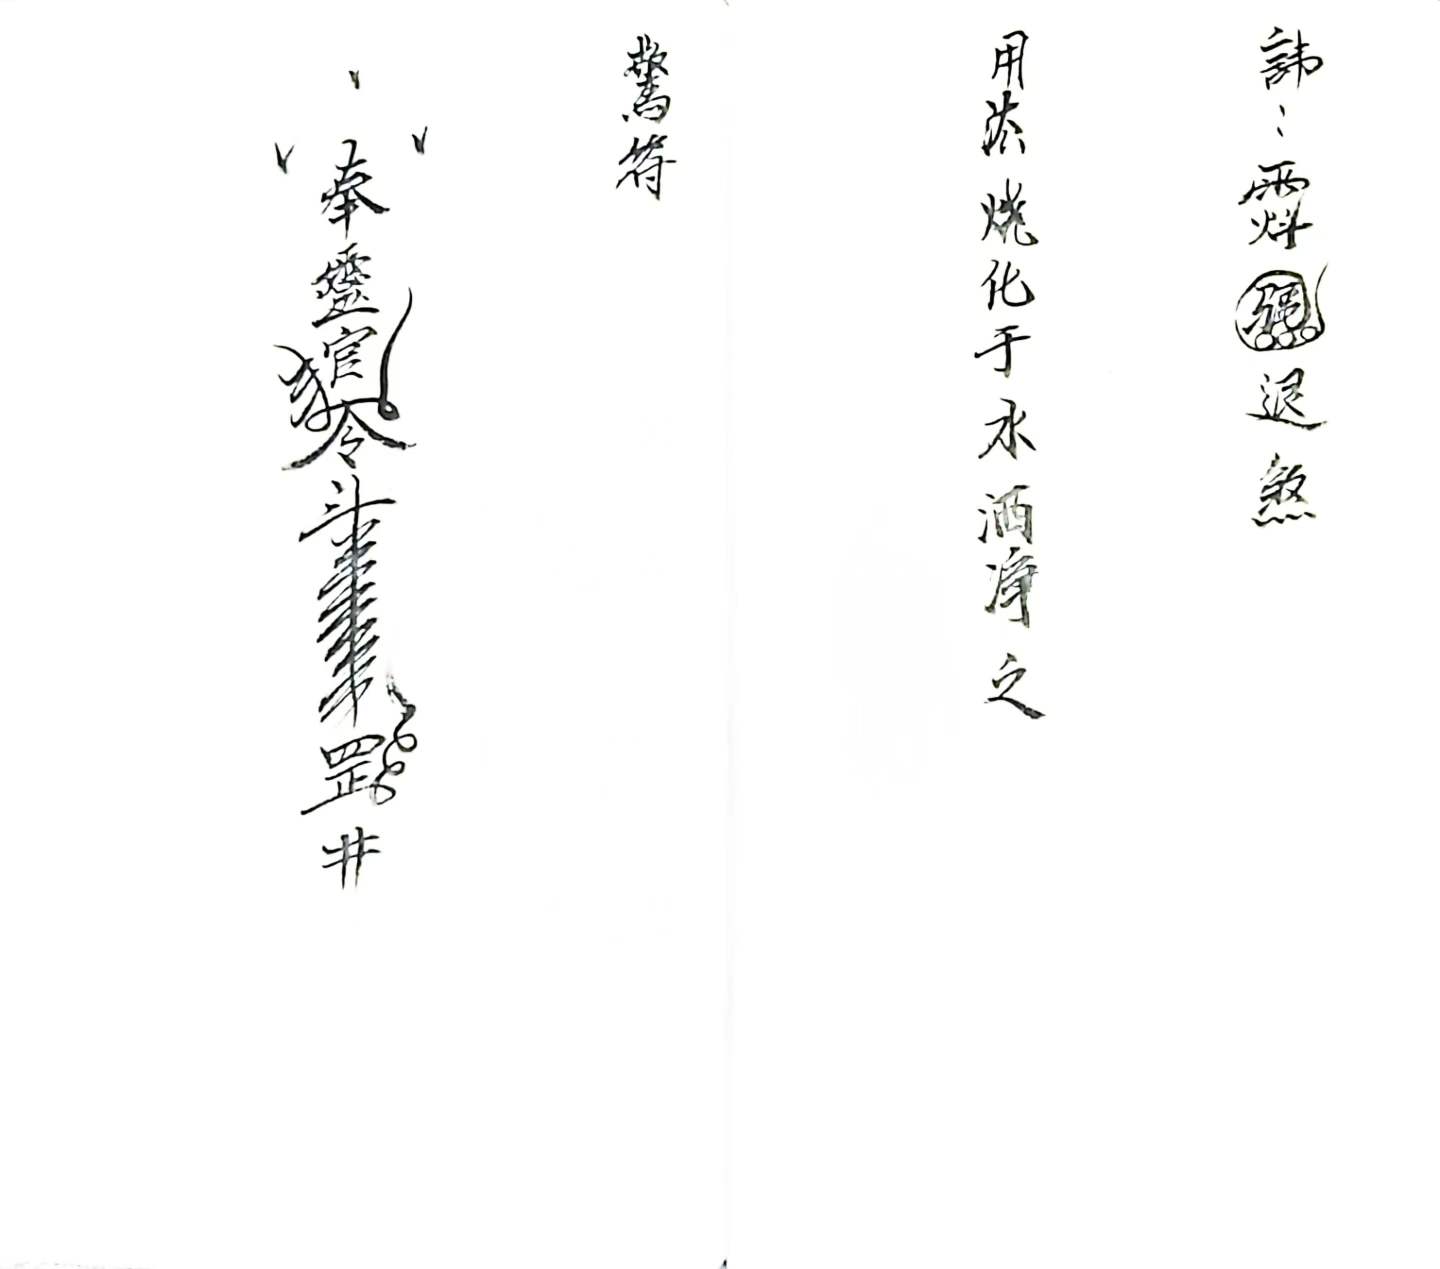 諱：霹退煞
用法燒化于水洒淨之
驚符
奉靈官令斗罡井